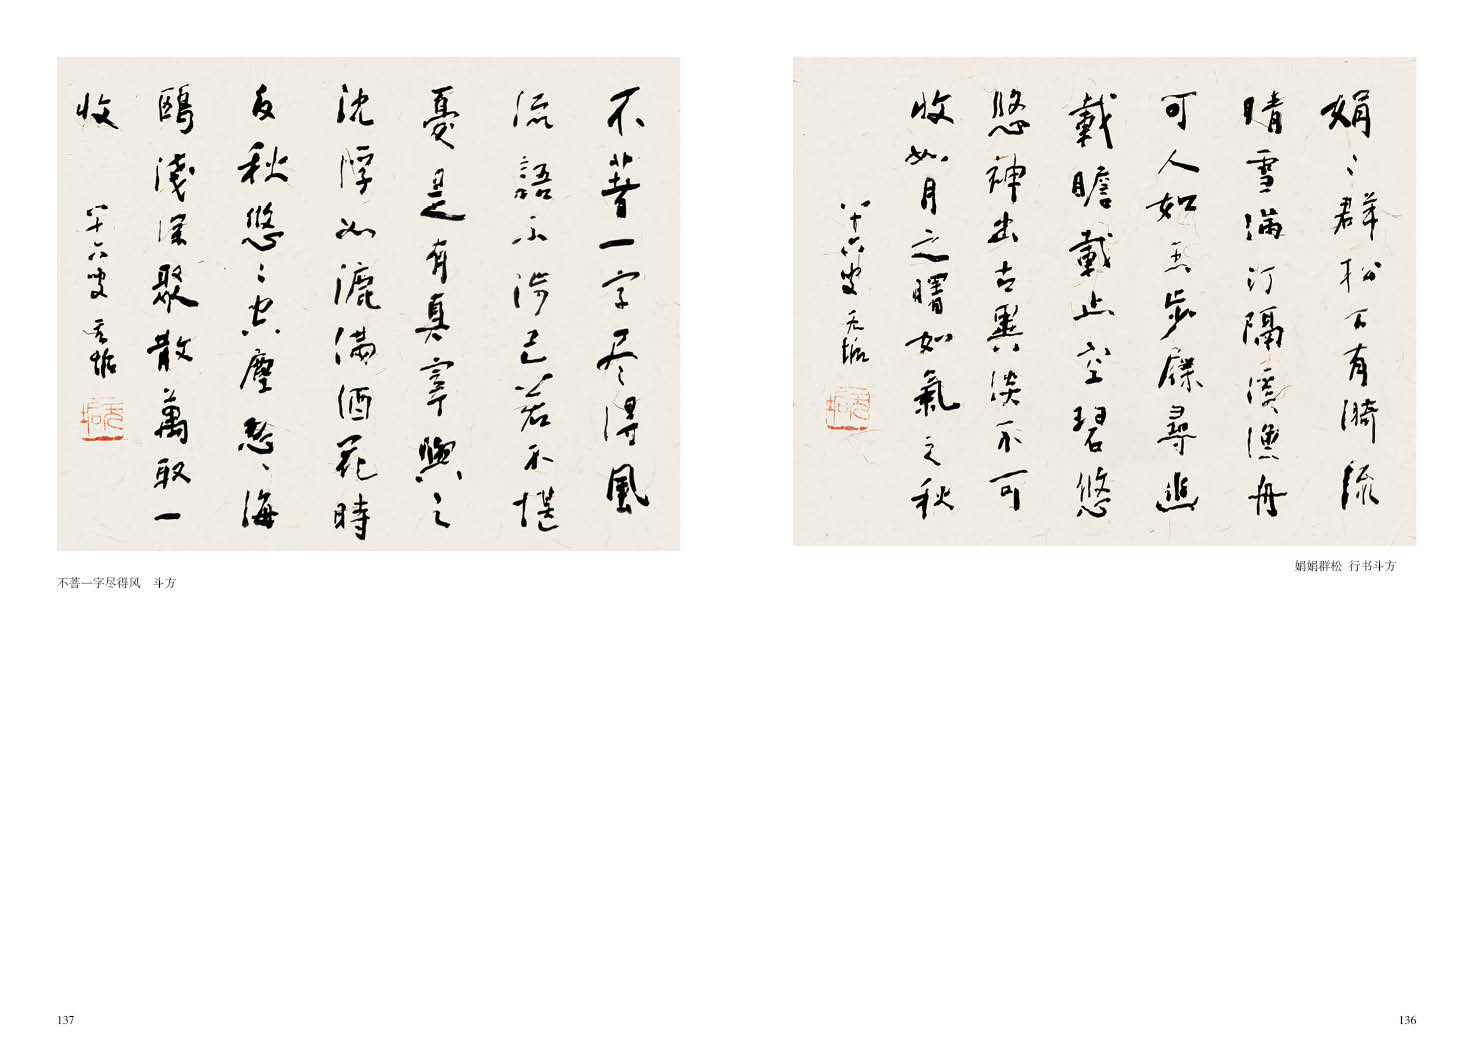 娟〻群松下有漪流
晴雪滿汀隔溪漁舟
可人如玉步屧尋幽
載瞻載止空碧悠
悠神出古異淡不可
收如月之曙如氣之秋
八十六叟 无垢
娟娟群松 行书斗方
136
不著一字尽得風
流語不涉己若不堪
憂是有真宰與之
沈浮如漉滿酒花時
反秋悠〻空塵忽〻海
鷗淺深聚散萬取一
收
八十六叟 无垢
不菩一字尽得风 斗方
137